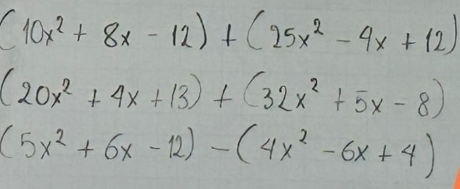 (10x² + 8x - 12) + (25x² - 4x + 12)
(20x² + 4x + 13) + (32x² + 5x - 8)
(5x² + 6x - 12) - (4x² - 6x + 4)